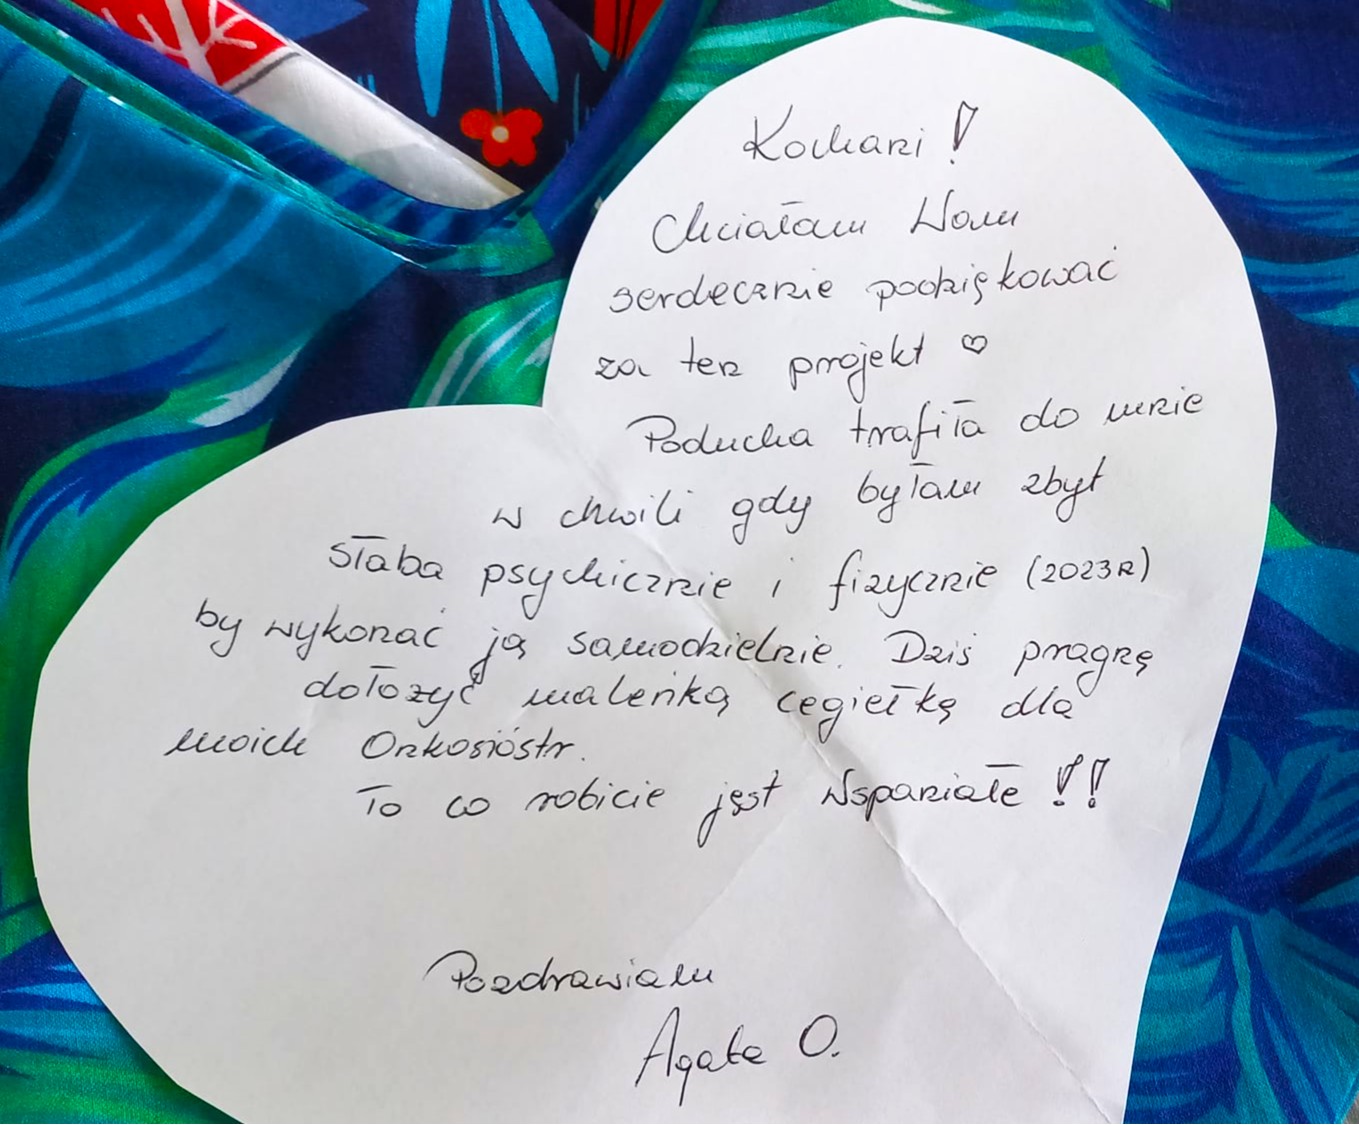 Kochani!
Chciałam Wam
serdecznie podziękować
za ten projekt ♡
Poducha trafiła do mnie
w chwili gdy byłam zbyt
słaba psychicznie i fizycznie (2023R)
by wykonać ją samodzielnie. Dziś pragnę
dołożyć maleńką cegiełkę dla
moich Onkosióstr.
To co robicie jest Wspaniałe!!
Pozdrawiam
Agata O.